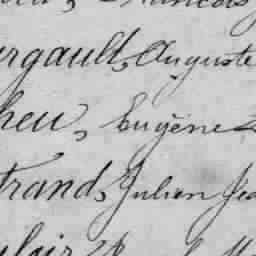 François
rgault, Auguste
heu, Eugène
trand, Julien
lair